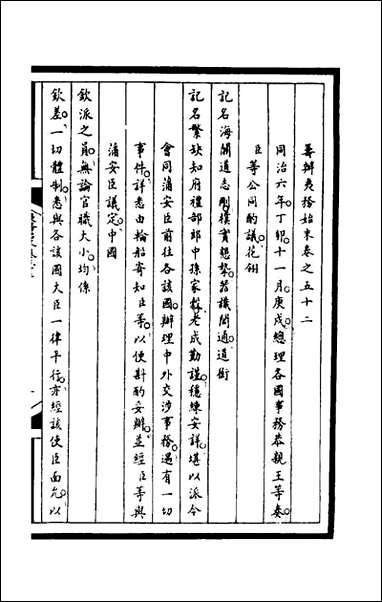 籌辦夷務始末卷之五十二
同治六年丁卯十一月庚戌總理各國事務恭親王等奏
臣等公同酌議花翎
記名海關道志剛樸實懇摯器識閎通道銜
記名繁缺知府禮部郎中孫家穀老成勤謹穩練安詳堪以派令
會同蒲安臣前往各該國辦理中外交涉事務遇有一切
事件詳悉由輪船寄知臣等以便斟酌妥辦並經臣等與
蒲安臣議定中國
欽派之員無論官職大小均係
欽差一切體制悉與各該國大臣一律平行亦經該使臣面允以